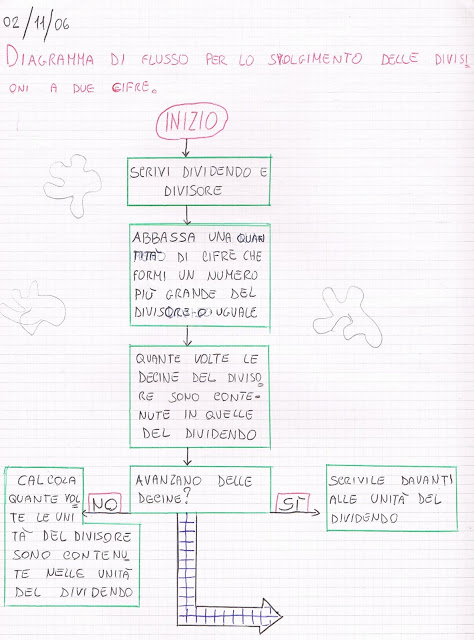 02/11/06
DIAGRAMMA DI FLUSSO PER LO SVOLGIMENTO DELLE DIVISI
ONI A DUE CIFRE.
INIZIO
SCRIVI DIVIDENDO E
DIVISORE
ABBASSA UNA QUAN
TITÀ DI CIFRE CHE
FORMI UN NUMERO
PIÙ GRANDE DEL
DIVISORE O UGUALE
QUANTE VOLTE LE
DECINE DEL DIVISO
RE SONO CONTE-
NUTE IN QUELLE
DEL DIVIDENDO
AVANZANO DELLE
DECINE?
NO
SÌ
CALCOLA
QUANTE VOL
TE LE UNI
TÀ DEL DIVISORE
SONO CONTENU
TE NELLE UNITÀ
DEL DIVIDENDO
SCRIVILE DAVANTI
ALLE UNITÀ DEL
DIVIDENDO